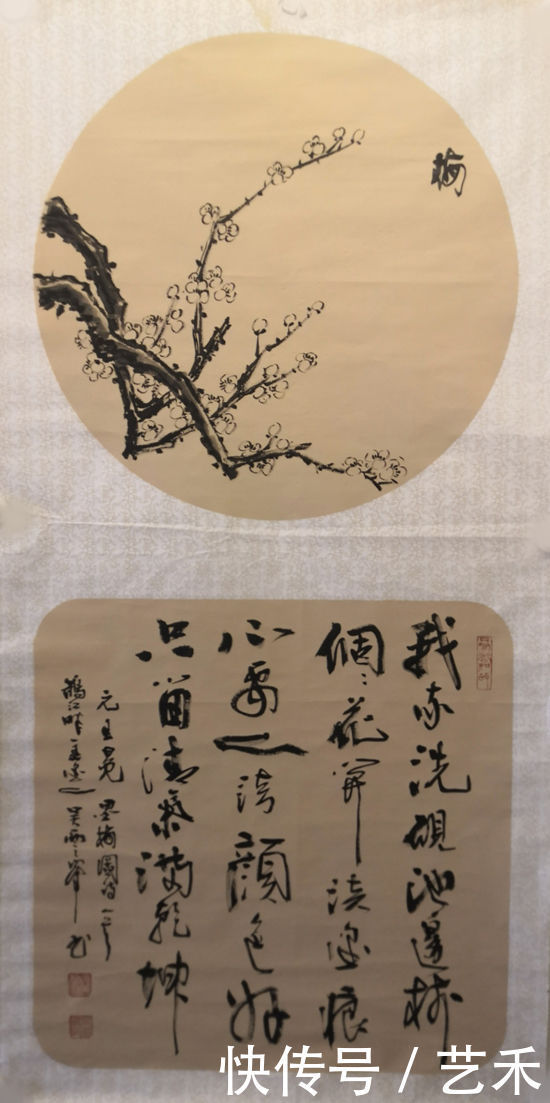 梅
我家洗硯池邊樹
個々花開淡墨痕
不要人誇顏色好
只留清氣滿乾坤
元王冕墨梅圖詩一首
江畔
快传号 / 艺禾